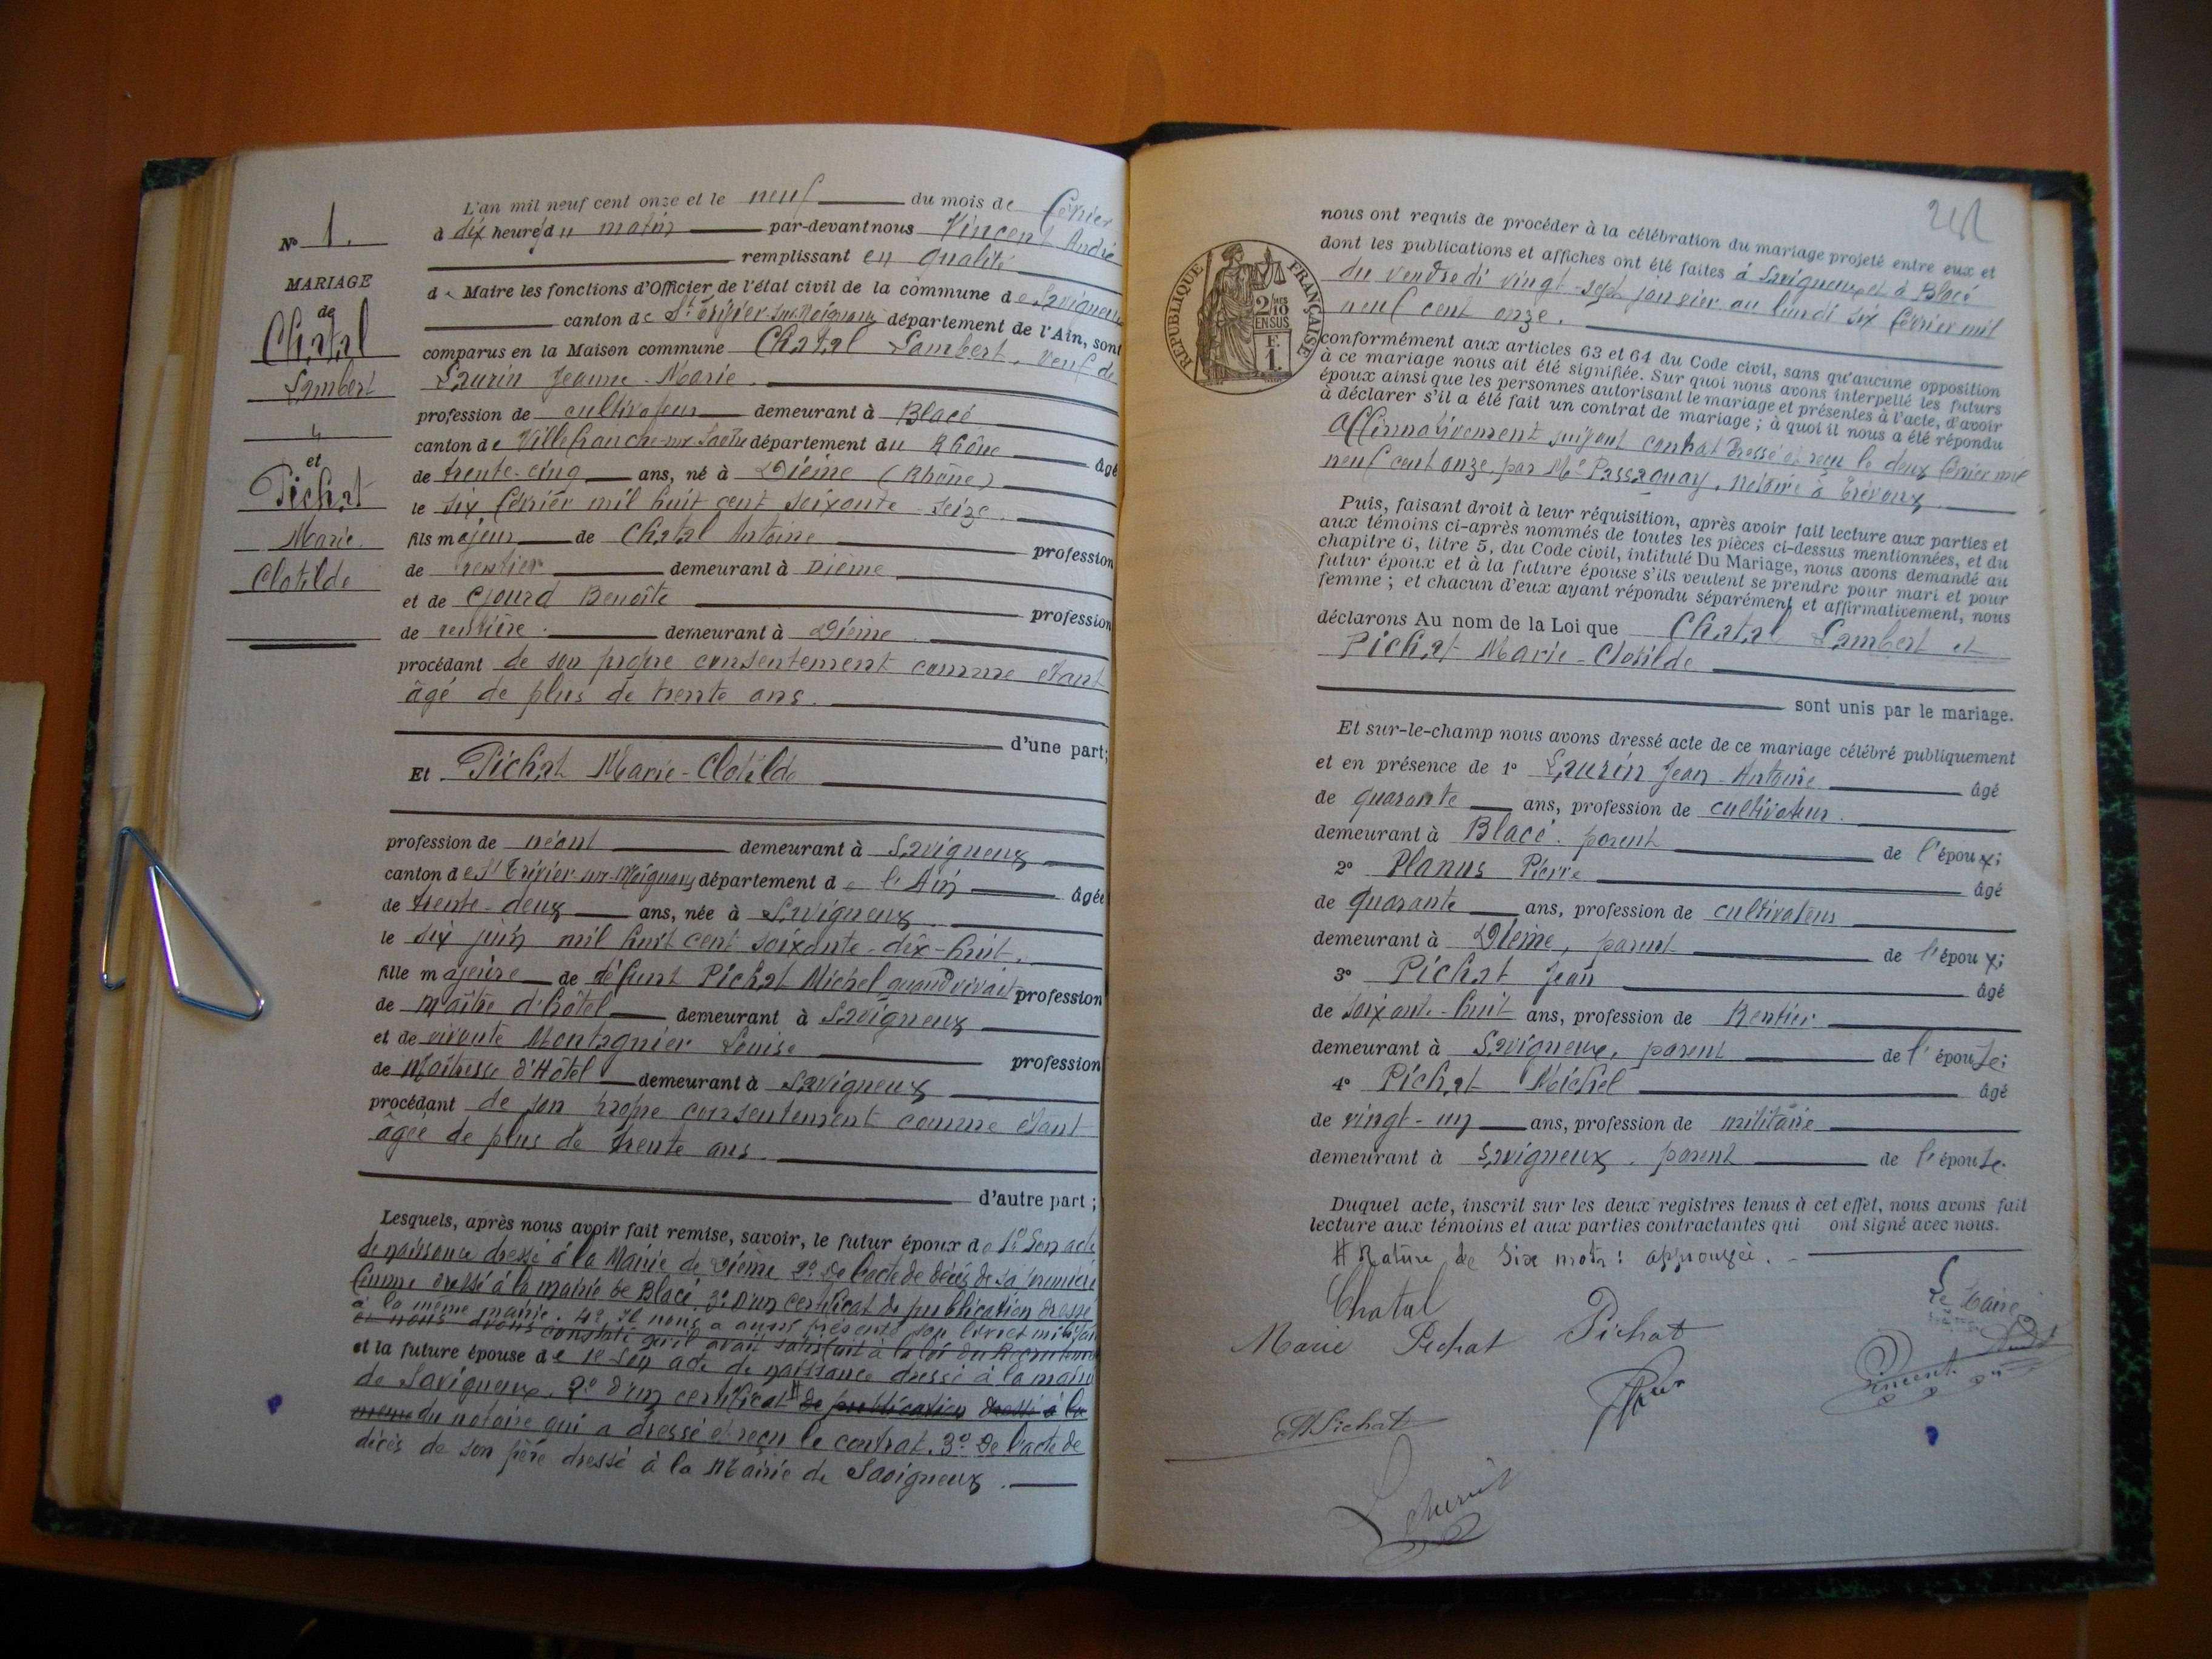 L'an mil neuf cent onze et le neuf du mois de février
à dix heures du matin par-devant nous Vincent André
remplissant en qualité
de Maire les fonctions d'Officier de l'état civil de la commune de Savigneux
canton de St Trivier sur Moignans département de l'Ain, sont
comparus en la Maison commune Chatal Lambert, veuf de
Laurin Jeanne-Marie
profession de cultivateur demeurant à Blacé
canton de Villefranche-sur Saône département du Rhône âgé
de trente-cinq ans, né à Dième (Rhône)
le six février mil huit cent soixante-seize
fils majeur de Chatal Antoine profession
de rentier demeurant à Dième
et de Gourd Benoîte profession
de rentière demeurant à Dième
procédant de son propre consentement comme étant
âgé de plus de trente ans.
d'une part;
Et Pichat Marie-Clotilde
profession de néant demeurant à Savigneux
canton de St Trivier-sur-Moignans département de l'Ain âgée
de trente-deux ans, née à Savigneux
le six juin mil huit cent soixante-dix-huit.
fille majeure de défunt Pichat Michel quand vivait profession
de maître d'hôtel demeurant à Savigneux
et de vivante Montagnier Louise profession
de Maîtresse d'Hôtel demeurant à Savigneux
procédant de son propre consentement comme étant
âgée de plus de trente ans.
d'autre part;
Lesquels, après nous avoir fait remise, savoir, le futur époux de 1º Son acte
de naissance dressé à la Mairie de Dième 2º De l'acte de décès de sa première
femme dressé à la mairie de Blacé, 3º D'un certificat de publication dressé
à la même mairie. 4º Il nous a aussi présenté son livret militaire
et nous avons constaté qu'il avait satisfait à la loi du Recrutement
et la future épouse de 1º Son acte de naissance dressé à la mairie
de Savigneux. 2º D'un certificat # de publication dressé à la
même du notaire qui a dressé et reçu le contrat. 3º De l'acte de
décès de son père dressé à la Mairie de Savigneux.
Nº 1.
MARIAGE
de
Chatal
Lambert
et
Pichat
Marie
Clotilde
nous ont requis de procéder à la célébration du mariage projeté entre eux et
dont les publications et affiches ont été faites à Savigneux et à Blacé
du vendredi vingt-sept janvier au lundi six février mil
neuf cent onze.
conformément aux articles 63 et 64 du Code civil, sans qu'aucune opposition
à ce mariage nous ait été signifiée. Sur quoi nous avons interpellé les futurs
époux ainsi que les personnes autorisant le mariage et présentes à l'acte, d'avoir
à déclarer s'il a été fait un contrat de mariage; à quoi il nous a été répondu
Affirmativement suivant contrat dressé et reçu le deux février mil
neuf cent onze, par Me Passaquay, notaire à Trévoux
Puis, faisant droit à leur réquisition, après avoir fait lecture aux parties et
aux témoins ci-après nommés de toutes les pièces ci-dessus mentionnées, et du
chapitre 6, titre 5, du Code civil, intitulé Du Mariage, nous avons demandé au
futur époux et à la future épouse s'ils veulent se prendre pour mari et pour
femme; et chacun d'eux ayant répondu séparément et affirmativement, nous
déclarons Au nom de la Loi que Chatal Lambert et
Pichat Marie-Clotilde
sont unis par le mariage.
Et sur-le-champ nous avons dressé acte de ce mariage célébré publiquement
et en présence de 1º Laurin Jean-Antoine âgé
de quarante ans, profession de cultivateur
demeurant à Blacé. parent de l'époux;
2º Planus Pierre âgé
de quarante ans, profession de cultivateur
demeurant à Dième, parent de l'époux;
3º Pichat Jean âgé
de soixante-huit ans, profession de Rentier
demeurant à Savigneux, parent de l'épouse;
4º Pichat Michel âgé
de vingt-un ans, profession de militaire
demeurant à Savigneux. parent de l'épouse.
Duquel acte, inscrit sur les deux registres tenus à cet effet, nous avons fait
lecture aux témoins et aux parties contractantes qui ont signé avec nous.
# Rature de six mots: approuvée.
Chatal
Le Maire
Marie Pichat Pichat
Vincent André
Pichat
Laurin
RÉPUBLIQUE FRANÇAISE
2/10
EN SUS
F.
1.